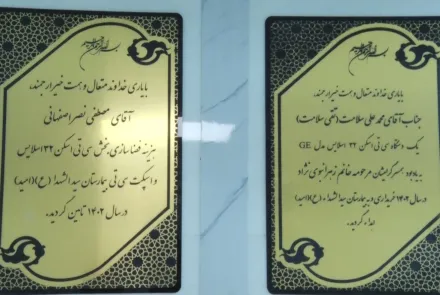 با یاری خداوند متعال و همت خیر ارجمند،
آقای مصطفی نصر اصفهانی
هزینه فضاسازی بخش سی تی اسکن ۳۲ اسلایس
و اسپکت سی تی بیمارستان سیدالشهدا (ع)(امید)
در سال ۱۴۰۲ تامین گردید.
با یاری خداوند متعال و همت خیر ارجمند،
جناب آقای محمد علی سلامت (تقی سلامت)
یک دستگاه سی تی اسکن ۳۲ اسلایس مدل GE
به یادبود همسر گرامیشان مرحومه خانم زهرا نبوی نژاد
در سال ۱۴۰۲ خریداری و به بیمارستان سیدالشهداء (ع)(امید)
اهداء گردید.